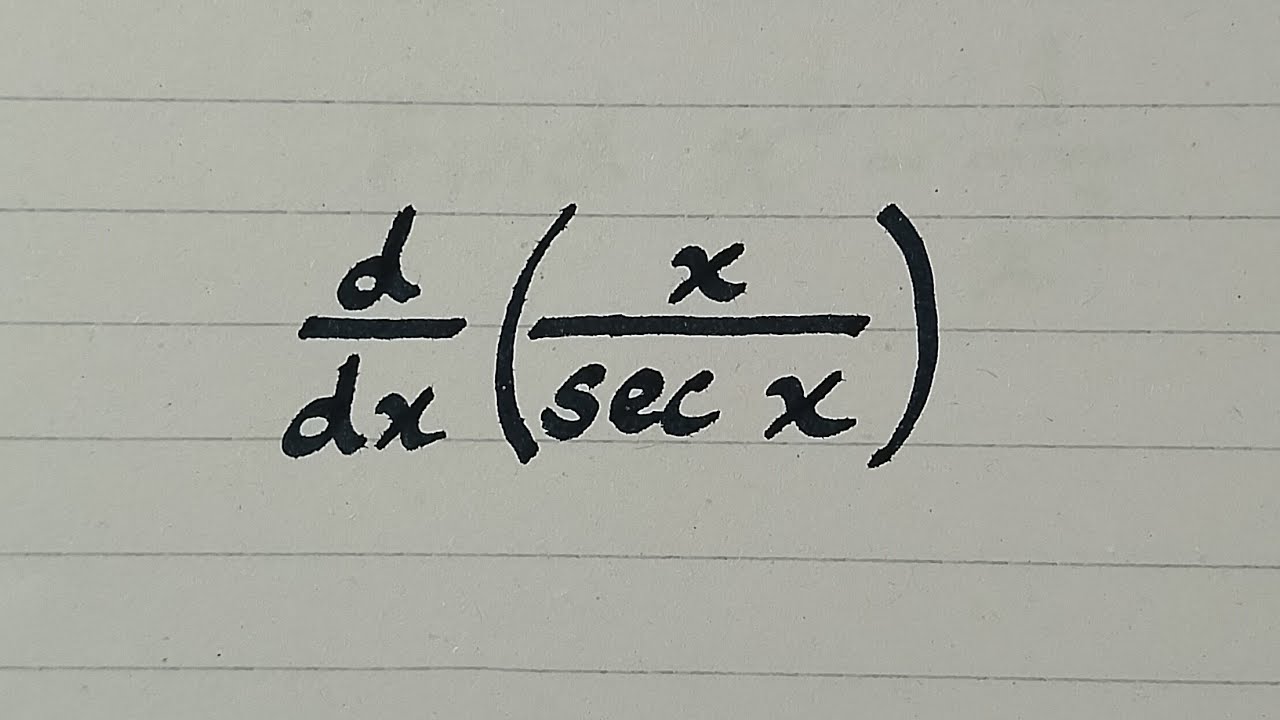 d/dx (x/sec x)